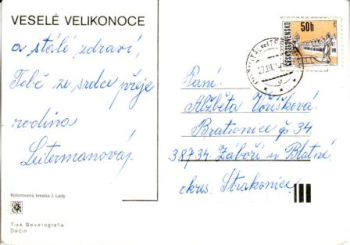 VESELÉ VELIKONOCE
a stálé zdraví,
Tobě ze srdce přeje
rodina
Leitermanova!
Kolorovaná kresba J. Lady
Tisk Severografia
Děčín
50h
ČESKOSLOVENSKO
Paní
Alžběta Voříšková
Bratronice čp 34
38734 Záboří u Blatné
okres Strakonice